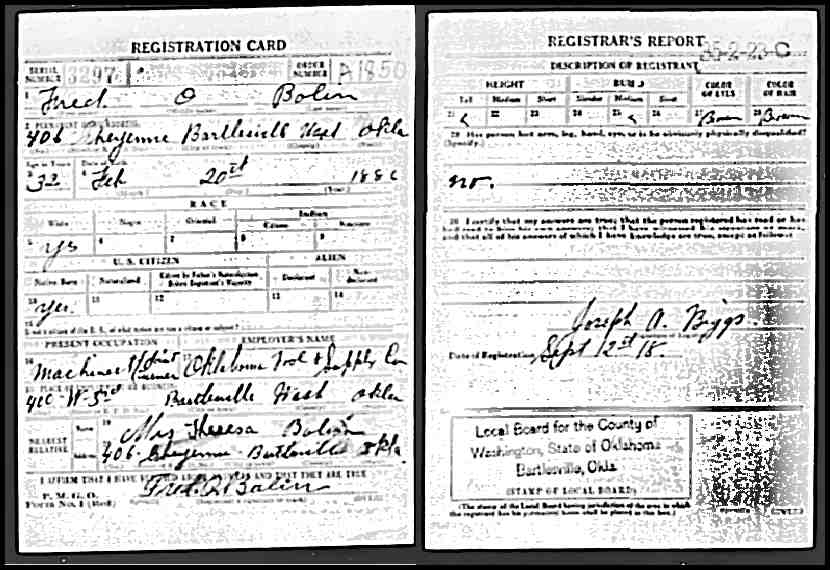 REGISTRATION CARD
SERIAL NUMBER 3297 ORDER NUMBER A1850
1 Fred O Bolin
2 PERMANENT HOME ADDRESS:
406 Cheyenne Bartlesville Wash Okla
Age in Years Date of Birth
3 32 4 Feb 20st
(Month.) (Day.) (Year.)
RACE
White Negro Oriental Indian
Citizen
5 yes 6 7 8 9
U. S. CITIZEN ALIEN
Native Born Naturalized Citizen by Father's Naturalization Before Registrant's Majority Declarant Non-declarant
10 yes. 11 12 13 14
15
PRESENT OCCUPATION EMPLOYER'S NAME
16 Machinest 17 Oklahoma Tool & Supply Co
PLACE OF EMPLOYMENT OR BUSINESS:
400 W-3rd Bartlesville Wash Okla
NEAREST RELATIVE Name 19 Mrs Theresa Bolin
Address 406 Cheyenne Bartlesville Okla.
I AFFIRM THAT I HAVE VERIFIED ABOVE ANSWERS AND THAT THEY ARE TRUE
P. M. G. O.
Form No. 1 (Red) Fred O Bolin
REGISTRAR'S REPORT 35-2-23-C
DESCRIPTION OF REGISTRANT
HEIGHT BUILD COLOR OF EYES COLOR OF HAIR
Tall Medium Short Slender Medium Stout
21 22 23 24 25 26 27 Brown 28 Brown
29 Has person lost arm, leg, hand, eye, or is he obviously physically disqualified?
(Specify.)
no.
30 I certify that my answers are true; that the person registered has read or has
had read to him his own answers; that I have witnessed his signature or mark,
and that all of his answers of which I have knowledge are true, except as follows:
Joseph A. Biggs.
Date of Registration Sept 12st 18.
Local Board for the County of
Washington, State of Oklahoma
Bartlesville, Okla.
(STAMP OF LOCAL BOARD)
(The stamp of the Local Board having jurisdiction of the area in which
the registrant has his permanent home shall be placed in this box.)